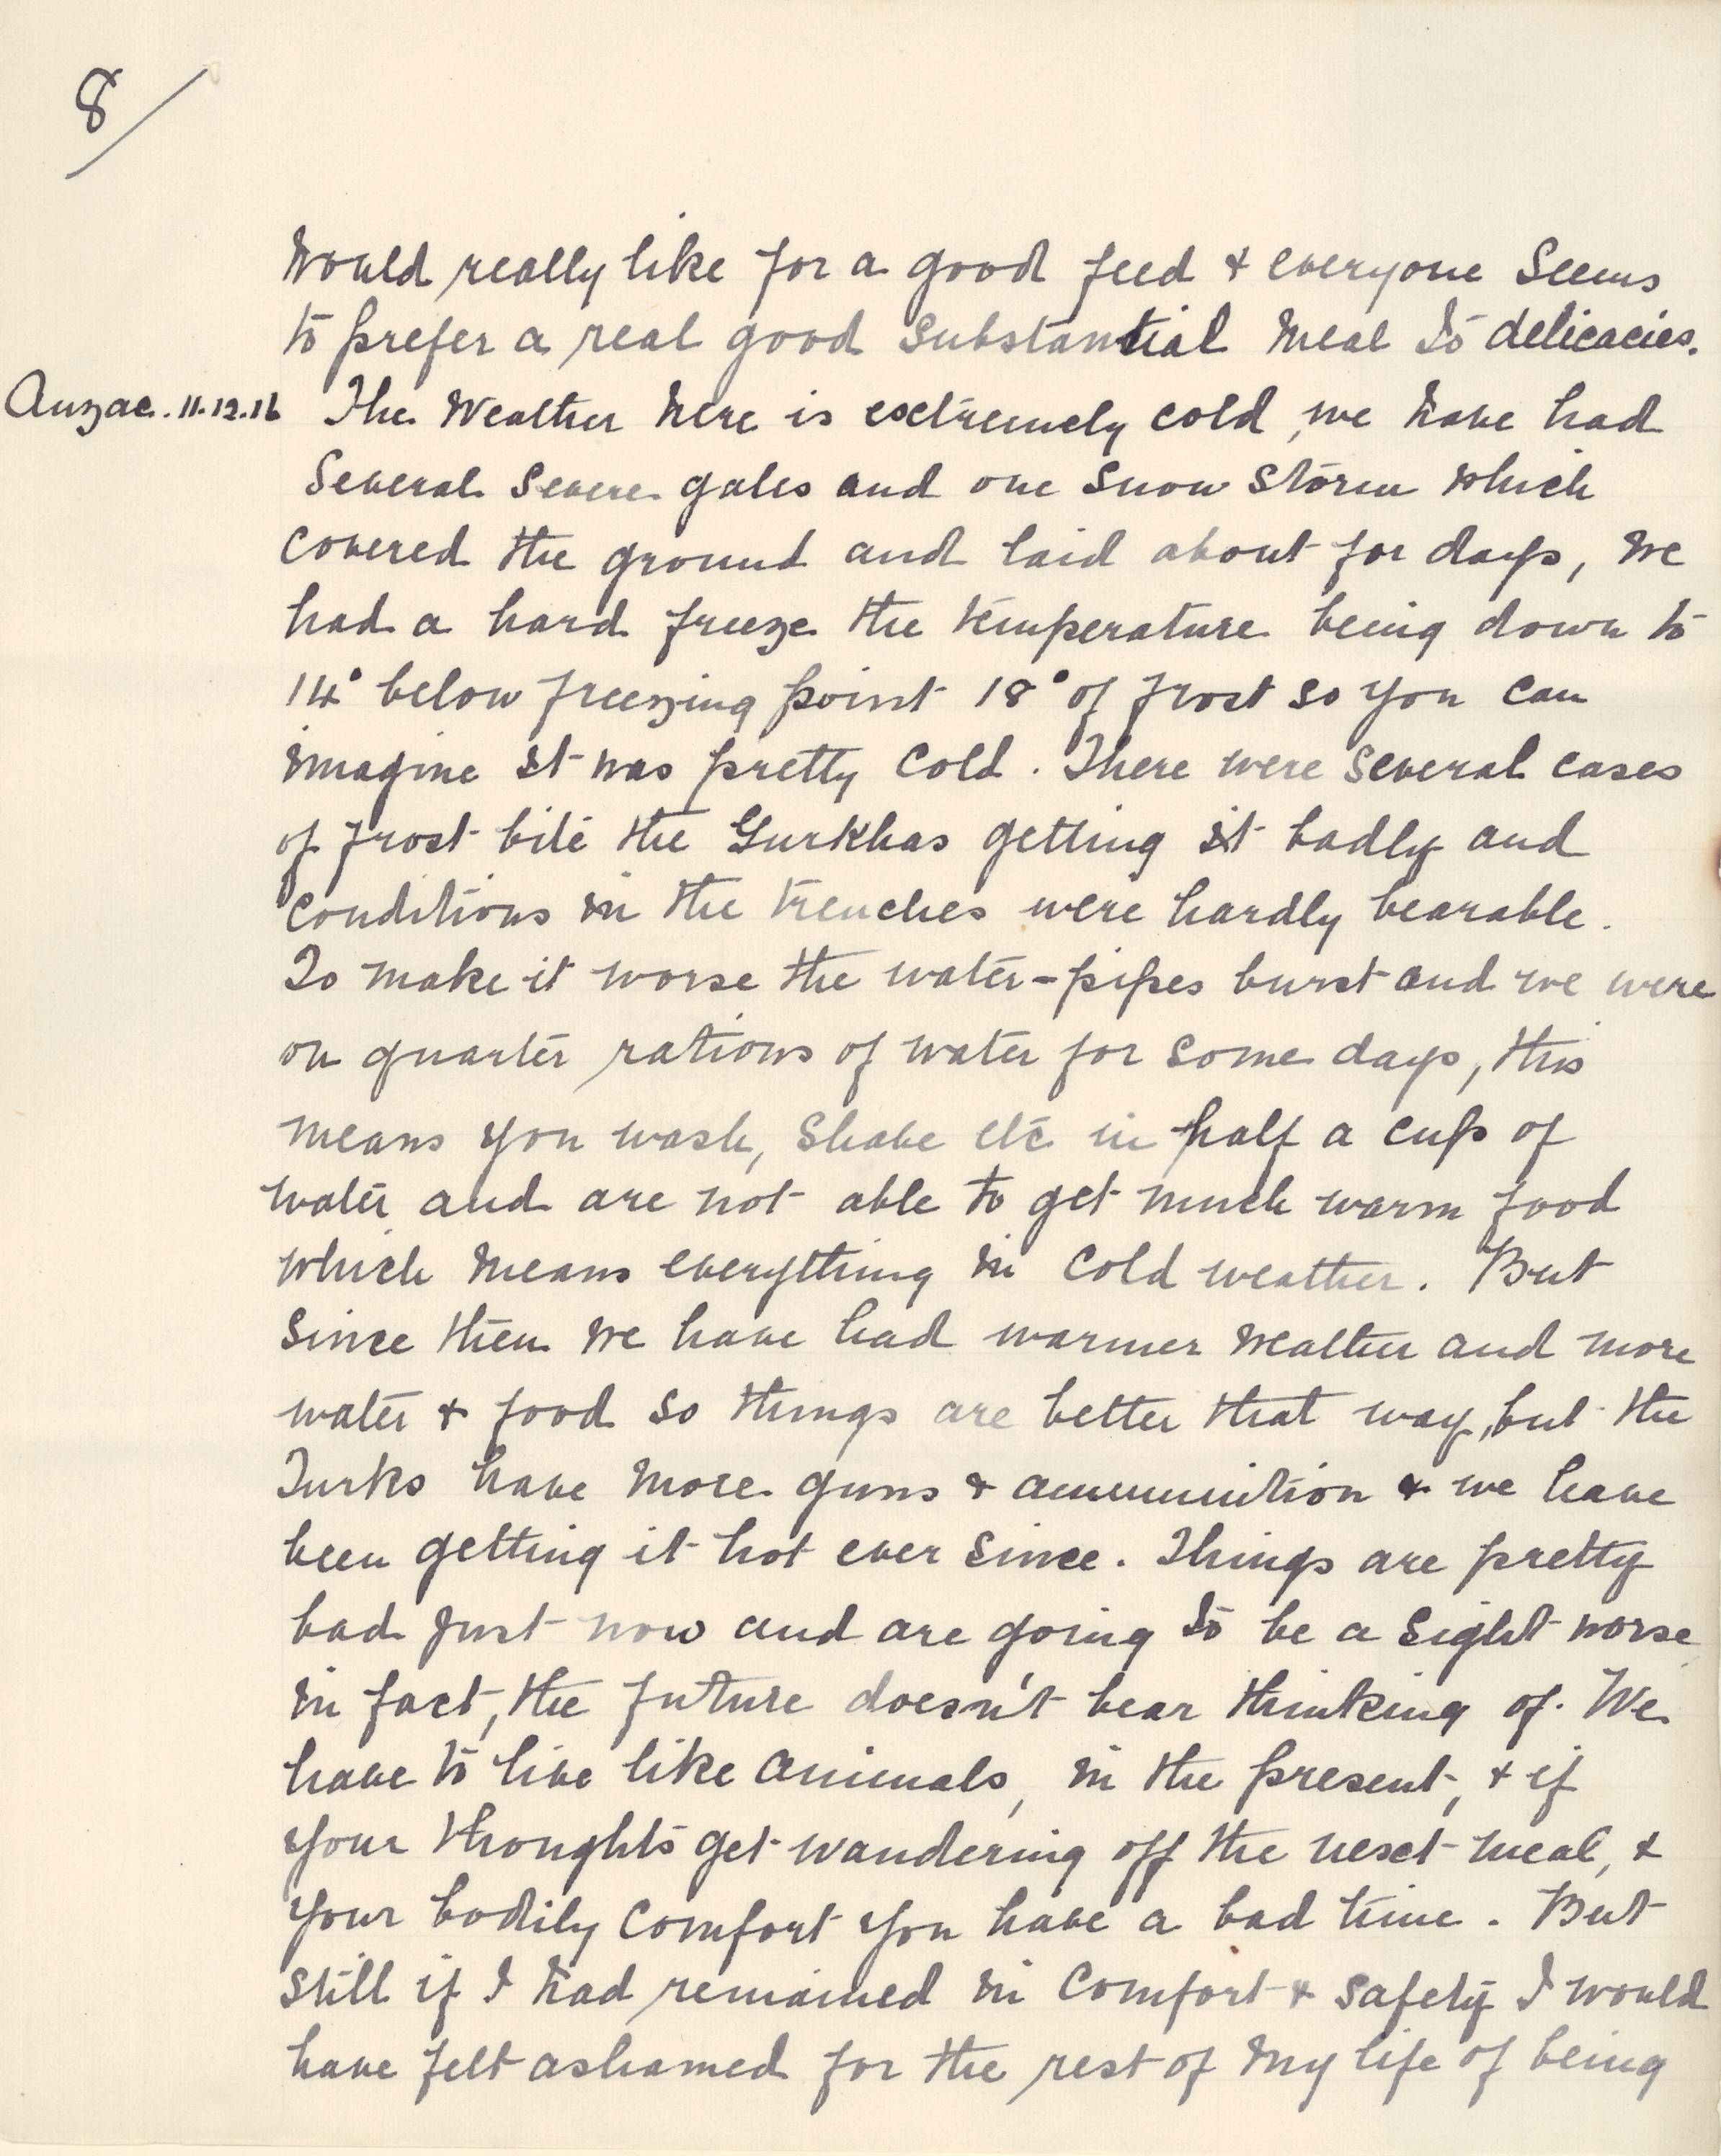 8/
would really like for a good feed & everyone seems
to prefer a real good substantial meal to delicacies.
Anzac. 11.12.16 The Weather here is extremely cold, we have had
several severe gales and one snow storm which
covered the ground and laid about for days, we
had a hard freeze the temperature being down to
14° below freezing point 18° of frost so you can
imagine it was pretty cold. There were several cases
of frost bite the Gurkhas getting it badly and
conditions in the trenches were hardly bearable.
To make it worse the water-pipes burst and we were
on quarter rations of water for some days, this
means you wash, shave etc in half a cup of
water and are not able to get much warm food
which means everything in cold weather. But
since then we have had warmer weather and more
water & food so things are better that way, but the
Turks have more guns & ammunition & we have
been getting it hot ever since. Things are pretty
bad just now and are going to be a sight worse
in fact, the future doesn't bear thinking of. We
have to live like animals, in the present, & if
your thoughts get wandering off the next meal, &
your bodily comfort you have a bad time. But
still if I had remained in comfort & safety I would
have felt ashamed for the rest of my life of being